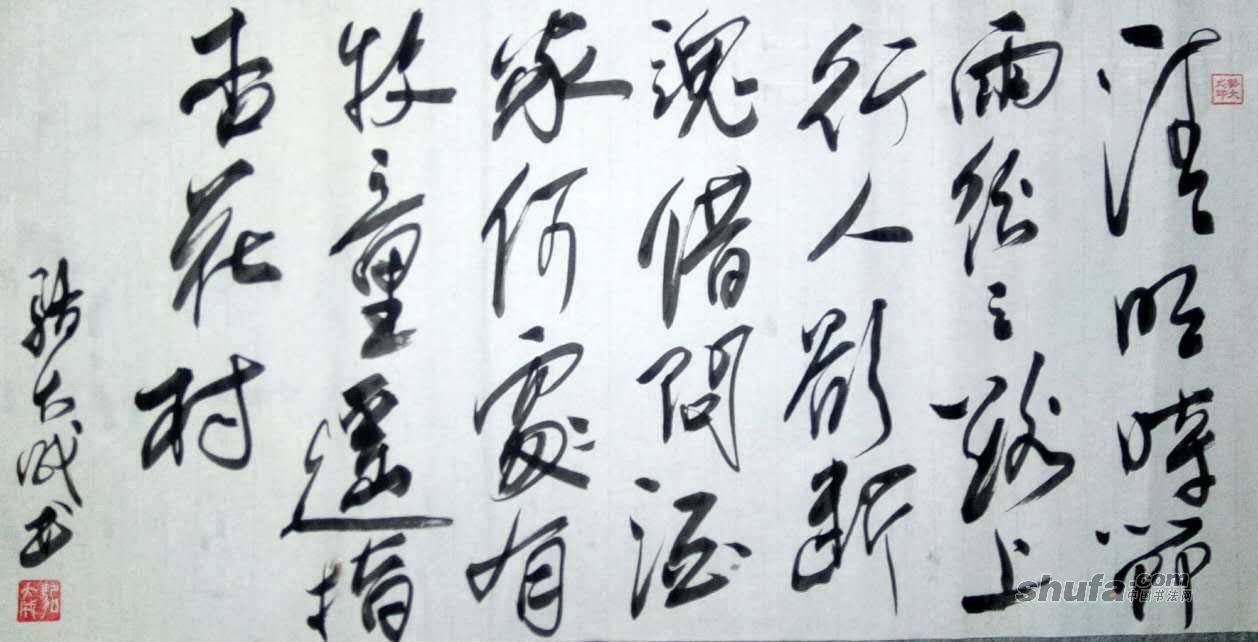 清明時節
雨紛〻路上
行人欲斷
魂借問酒
家何處有
牧童遥指
杏花村
大成书
shufa.com
中国书法网